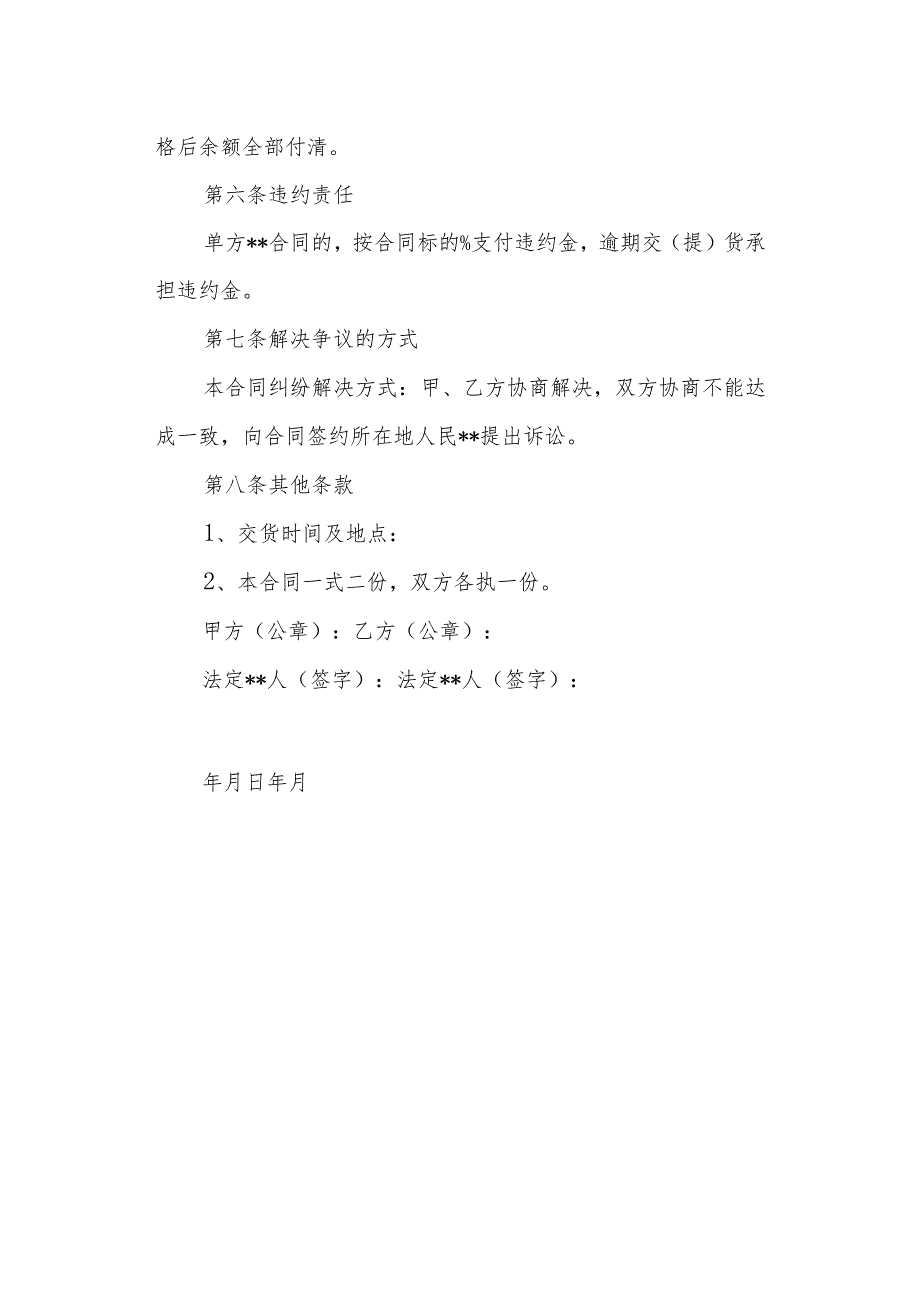 格后余额全部付清。
第六条违约责任
单方**合同的，按合同标的%支付违约金，逾期交（提）货承
担违约金。
第七条解决争议的方式
本合同纠纷解决方式：甲、乙方协商解决，双方协商不能达
成一致，向合同签约所在地人民**提出诉讼。
第八条其他条款
1、交货时间及地点：
2、本合同一式二份，双方各执一份。
甲方（公章）：乙方（公章）：
法定**人（签字）：法定**人（签字）：
年月日年月